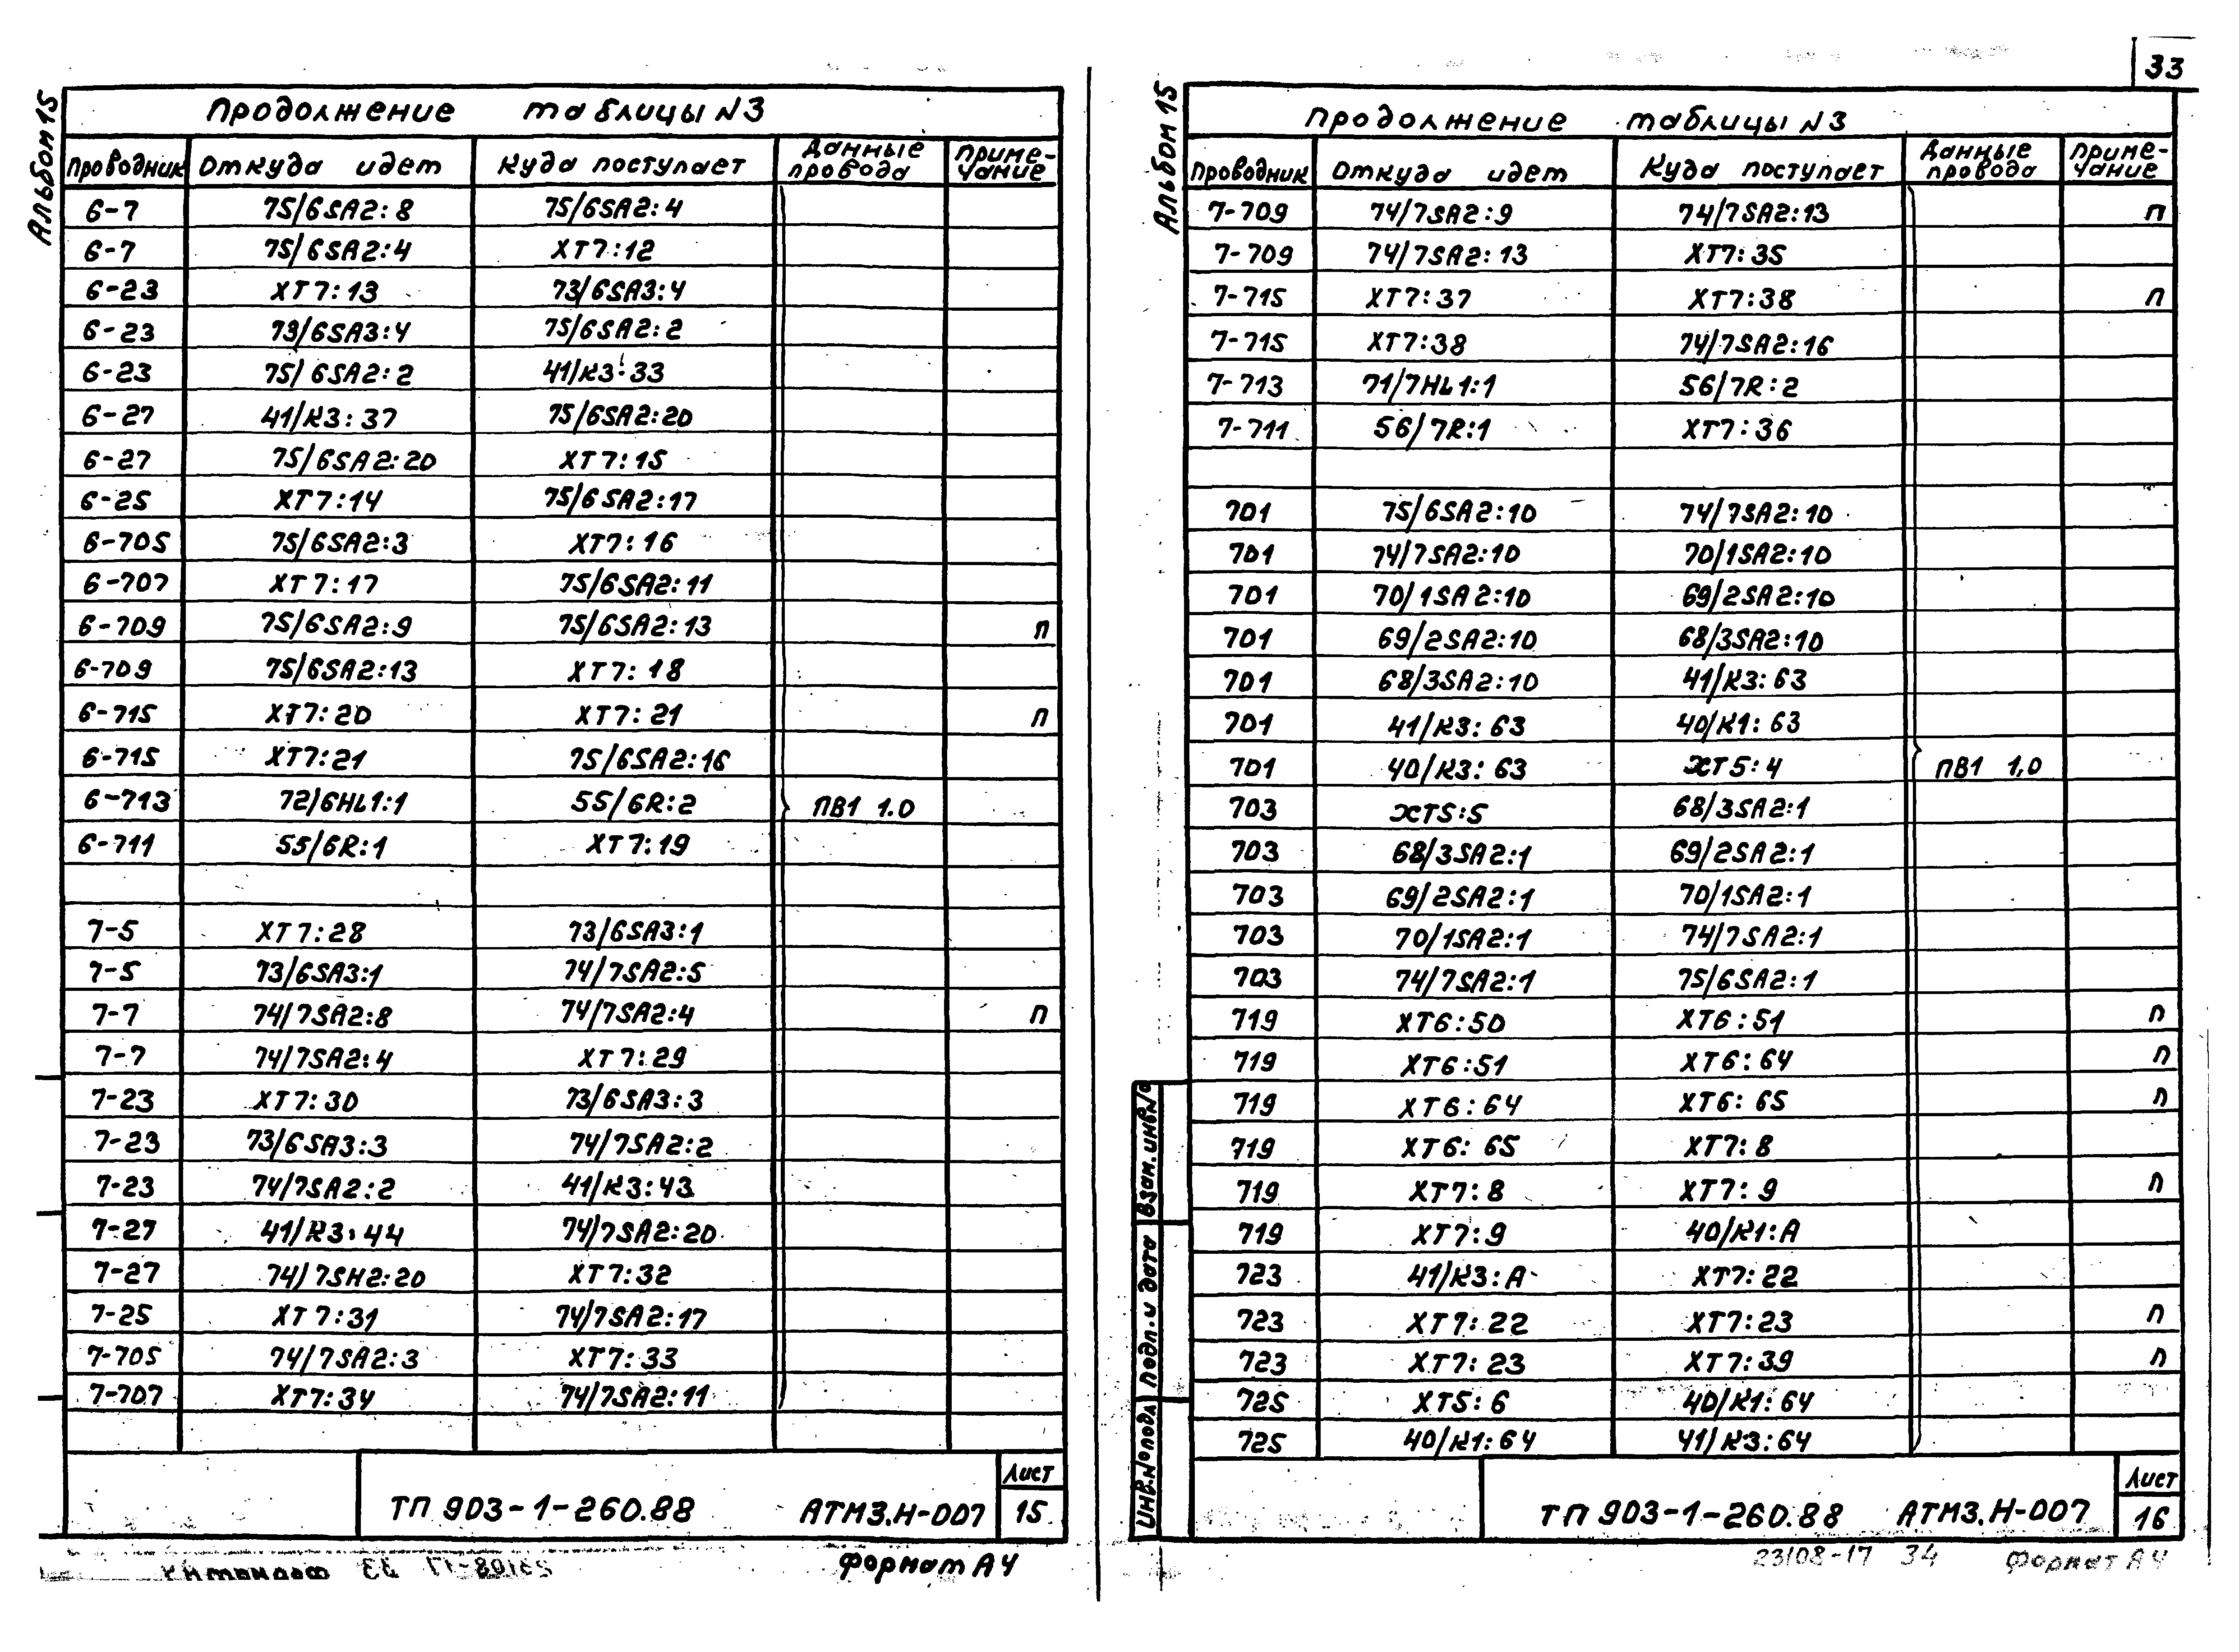 33
Альбом 15
Продолжение таблицы N3
Проводник Откуда идет Куда поступает Данные провода Примечание
6-7 75/6SA2:8 75/6SA2:4
6-7 75/6SA2:4 XT7:12
6-23 XT7:13 73/6SA3:4
6-23 73/6SA3:4 75/6SA2:2
6-23 75/6SA2:2 41/K3:33
6-27 41/K3:37 75/6SA2:20
6-27 75/6SA2:20 XT7:15
6-25 XT7:14 75/6SA2:17
6-705 75/6SA2:3 XT7:16
6-707 XT7:17 75/6SA2:11
6-709 75/6SA2:9 75/6SA2:13 п
6-709 75/6SA2:13 XT7:18
6-715 XT7:20 XT7:21 п
6-715 XT7:21 75/6SA2:16
6-713 72/6HL1:1 55/6R:2 ПВ1 1.0
6-711 55/6R:1 XT7:19
7-5 XT7:28 73/6SA3:1
7-5 73/6SA3:1 74/7SA2:5
7-7 74/7SA2:8 74/7SA2:4 п
7-7 74/7SA2:4 XT7:29
7-23 XT7:30 73/6SA3:3
7-23 73/6SA3:3 74/7SA2:2
7-23 74/7SA2:2 41/K3:43
7-27 41/K3:44 74/7SA2:20
7-27 74/7SH2:20 XT7:32
7-25 XT7:31 74/7SA2:17
7-705 74/7SA2:3 XT7:33
7-707 XT7:34 74/7SA2:11
ТП 903-1-260.88 АТМ3.Н-007 Лист 15
Формат А4
Альбом 15
Продолжение таблицы N3
Проводник Откуда идет Куда поступает Данные провода Примечание
7-709 74/7SA2:9 74/7SA2:13 п
7-709 74/7SA2:13 XT7:35
7-715 XT7:37 XT7:38 п
7-715 XT7:38 74/7SA2:16
7-713 71/7HL1:1 56/7R:2
7-711 56/7R:1 XT7:36
701 75/6SA2:10 74/7SA2:10
701 74/7SA2:10 70/1SA2:10
701 70/1SA2:10 69/2SA2:10
701 69/2SA2:10 68/3SA2:10
701 68/3SA2:10 41/K3:63
701 41/K3:63 40/K1:63
701 40/K3:63 XT5:4 ПВ1 1,0
703 XT5:5 68/3SA2:1
703 68/3SA2:1 69/2SA2:1
703 69/2SA2:1 70/1SA2:1
703 70/1SA2:1 74/7SA2:1
703 74/7SA2:1 75/6SA2:1
719 XT6:50 XT6:51 п
719 XT6:51 XT6:64 п
719 XT6:64 XT6:65 п
719 XT6:65 XT7:8
719 XT7:8 XT7:9 п
719 XT7:9 40/K1:A
723 41/K3:A XT7:22
723 XT7:22 XT7:23 п
723 XT7:23 XT7:39 п
725 XT5:6 40/K1:64
725 40/K1:64 41/K3:64
Инв.N подл Подп. и дата Взам.инв.N
ТП 903-1-260.88 АТМ3.Н-007 Лист 16
23108-17 34 Формат А4